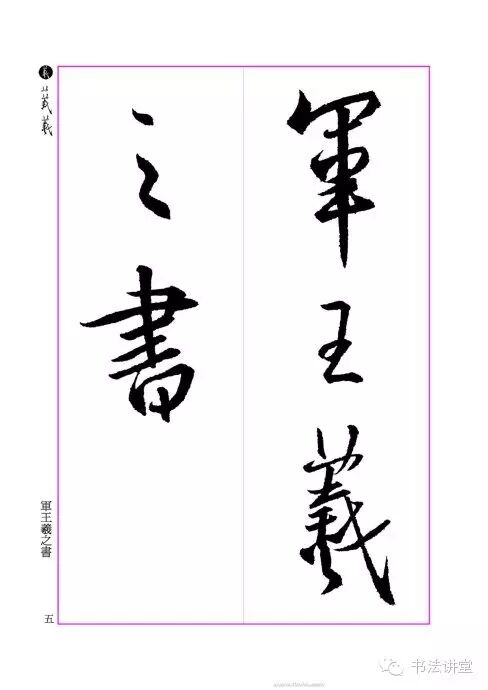 軍王羲
之書
羲
軍王羲之書
五
书法讲堂